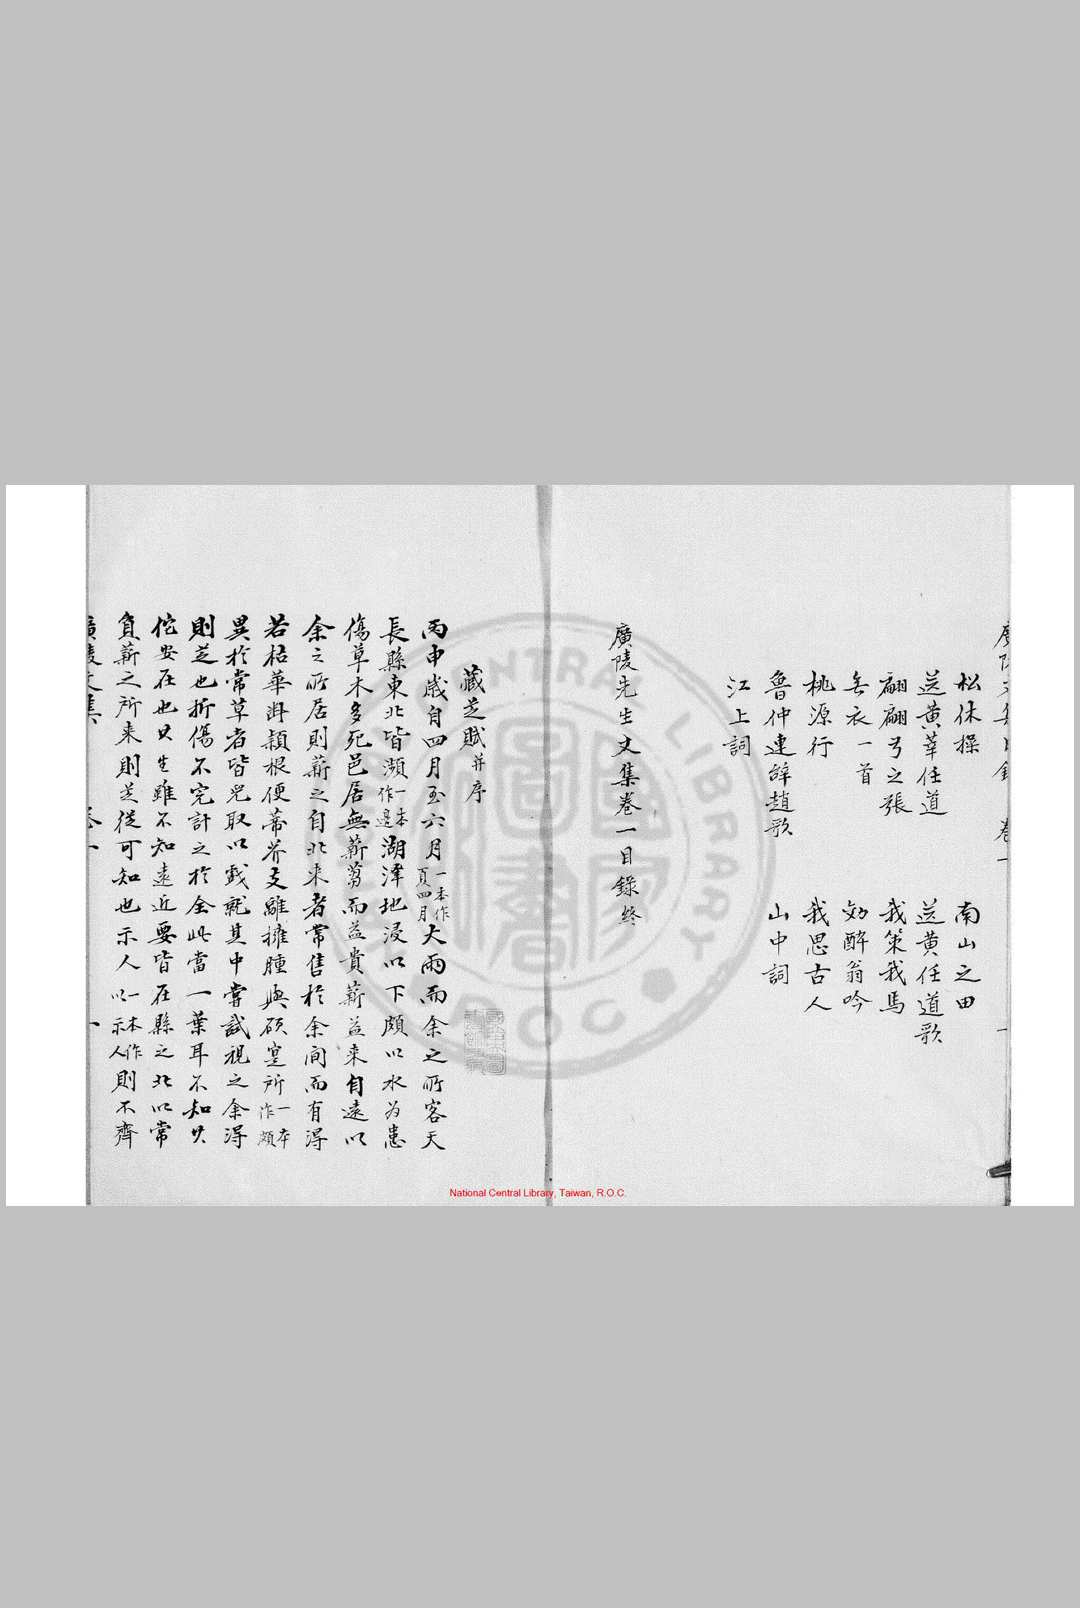 松休操　南山之田
送黄莘任道　送黄任道歌
翩翩弓之張　我策我馬
無衣一首　效醉翁吟
桃源行　我思古人
魯仲連辭趙歌　山中詞
江上詞
廣陵先生文集卷一目録終
藏芝賦并序
丙申歳自四月至六月一本作頁四月大雨而余之所客天
長縣東北皆瀕一本作邉湖澤地浸以下頗以水為患
傷草木多死邑居無薪蒭而益貴薪益来自遠以
余之所居則薪之自北来者常售於余间而有得
若枯華附頴根便蒂芥支離擁腫與硕寔所一本作頗
異於常草者皆児取以戱就其中甞試視之余得
則芝也折傷不完計之於全此當一葉耳不知其
佗安在也其生雖不知遠近要皆在縣之北以常
負薪之所来則芝從可知也示人一本作以示人則不齊
廣陵文集　卷一　一
National Central Library, Taiwan, R.O.C.